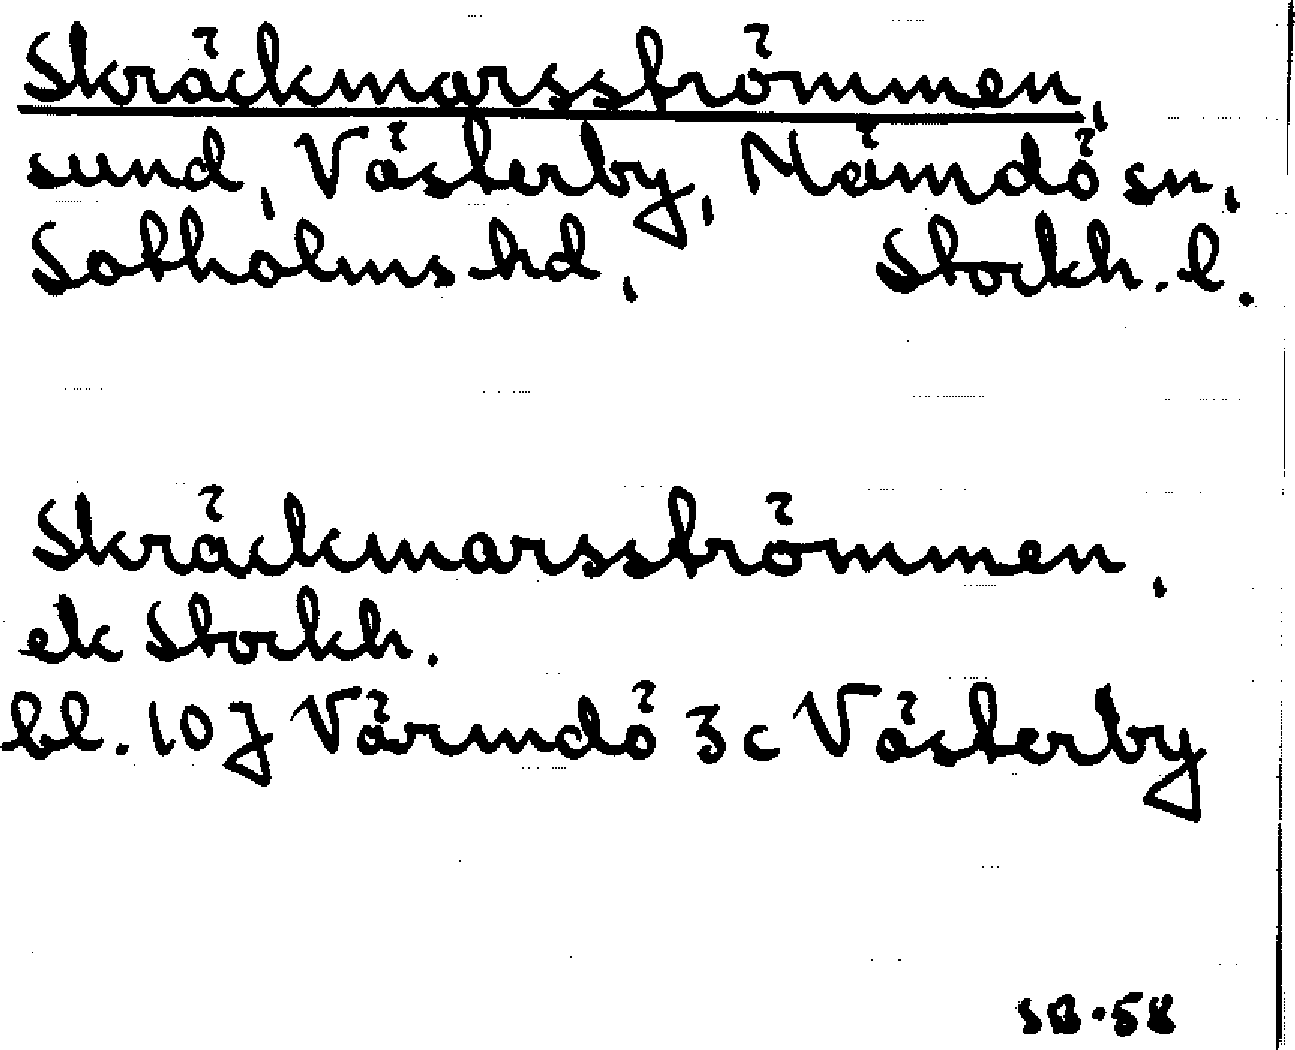 Skräckmarsströmmen,
sund, Västerby, Nämdö sn,
Sotholms hd, Stockh. l.
Skräckmarsströmmen,
ek Stockh.
bl. 10J Värmdö 3c Västerby
SB·58